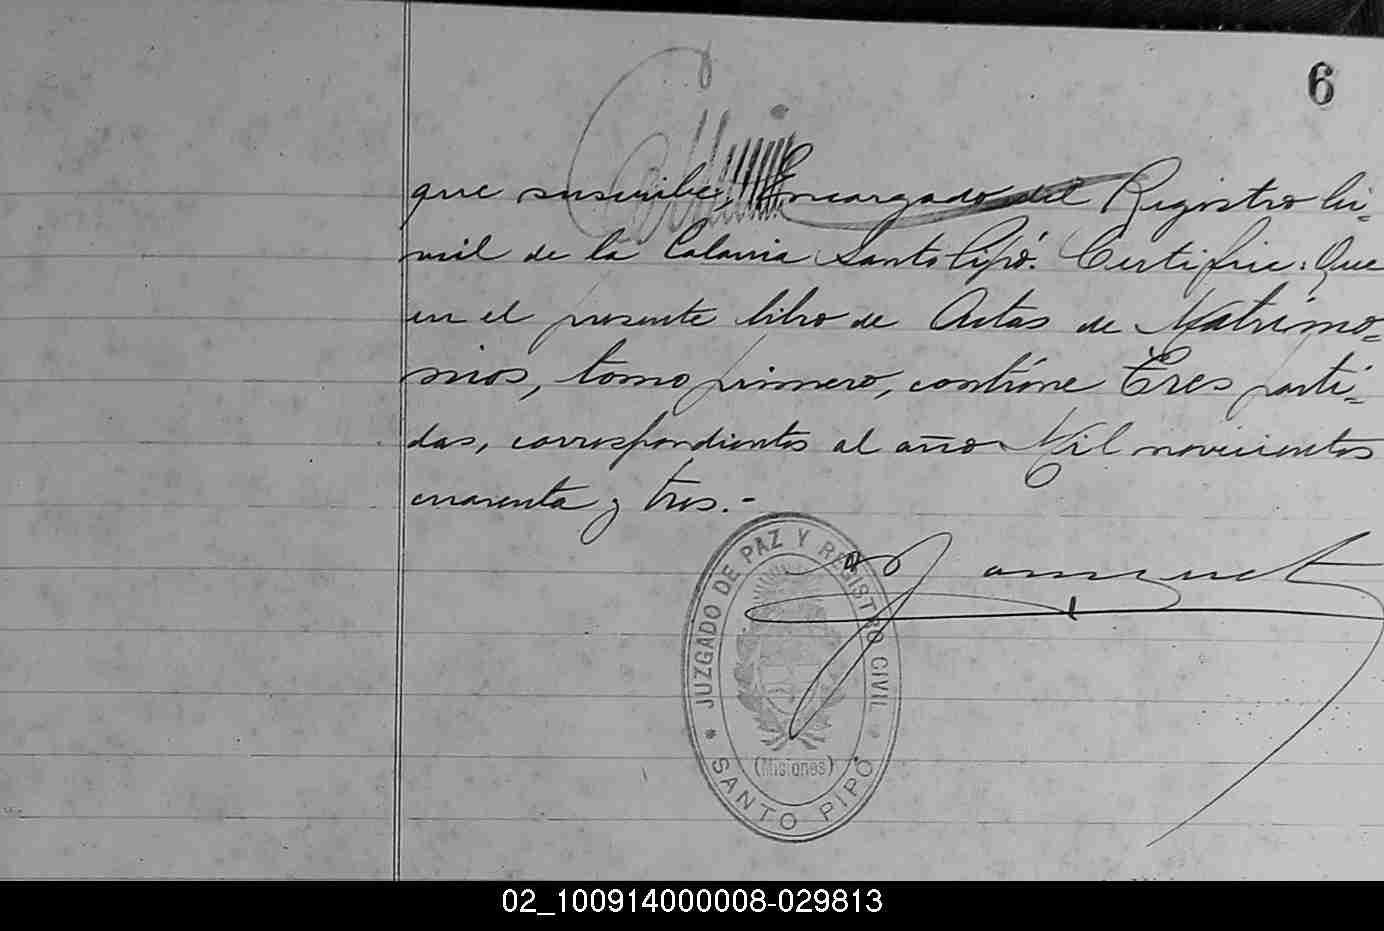 6
que suscribe, Encargado del Registro Ci-
vil de la Colonia Santo Pipó. Certifico: Que
en el presente libro de Actas de Matrimo-
nios, tomo primero, contiene Tres parti-
das, correspondientes al año Mil novecientos
cuarenta y tres.-
JUZGADO DE PAZ Y REGISTRO CIVIL
(Misiones)
* SANTO PIPÓ *
02_100914000008-029813